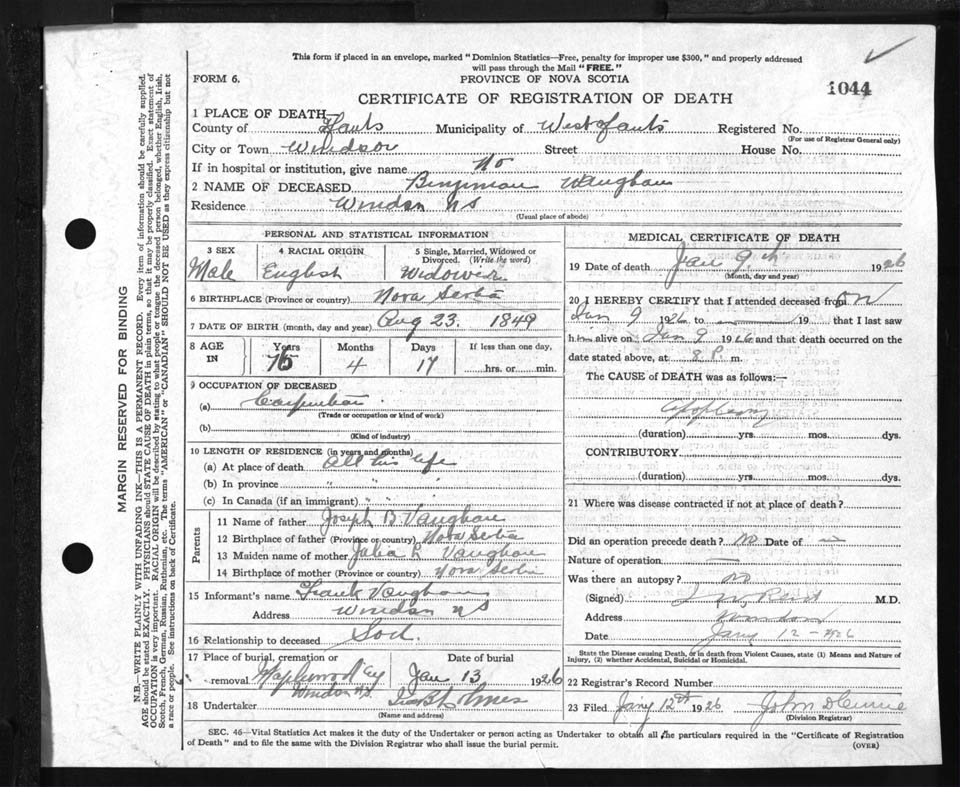 This form if placed in an envelope, marked "Dominion Statistics—Free, penalty for improper use $300," and properly addressed
will pass through the Mail "FREE."
FORM 6.
PROVINCE OF NOVA SCOTIA
1044
CERTIFICATE OF REGISTRATION OF DEATH
1 PLACE OF DEATH
County of Hants Municipality of West Hants Registered No.
(For use of Registrar General only)
City or Town Windsor Street House No.
If in hospital or institution, give name No
2 NAME OF DECEASED Vaughan
Residence Windsor NS
(Usual place of abode)
PERSONAL AND STATISTICAL INFORMATION
3 SEX 4 RACIAL ORIGIN 5 Single, Married, Widowed or
Divorced. (Write the word)
Male English Widower
6 BIRTHPLACE (Province or country) Nova Scotia
7 DATE OF BIRTH (month, day and year) Aug 23. 1849
8 AGE IN Years Months Days If less than one day,
4 17 hrs. or min.
9 OCCUPATION OF DECEASED
(a) Carpenter
(Trade or occupation or kind of work)
(b)
(Kind of industry)
10 LENGTH OF RESIDENCE (in years and months)
(a) At place of death All his life
(b) In province " " "
(c) In Canada (if an immigrant) " " "
Parents
11 Name of father Joseph B. Vaughan
12 Birthplace of father (Province or country) Nova Scotia
13 Maiden name of mother Julia Vaughan
14 Birthplace of mother (Province or country) Nova Scotia
15 Informant's name Frank Vaughan
Address Windsor NS
16 Relationship to deceased Son
17 Place of burial, cremation or removal Date of burial
Maplewood Windsor NS Jan 13 1926
18 Undertaker
(Name and address)
MEDICAL CERTIFICATE OF DEATH
19 Date of death Jan 9th 1926
(Month, day and year)
20 I HEREBY CERTIFY that I attended deceased from on
Jan 9 1926 to 19 that I last saw
him alive on Jan 9 1926 and that death occurred on the
date stated above, at 8 P. m.
The CAUSE OF DEATH was as follows:—
Apoplexy
(duration) yrs. mos. dys.
CONTRIBUTORY
(duration) yrs. mos. dys.
21 Where was disease contracted if not at place of death?
Did an operation precede death? no Date of
Nature of operation —
Was there an autopsy? no
(Signed) Reid M.D.
Address Windsor
Date Jany 12 - 1926
State the Disease causing Death, or in death from Violent Causes, state (1) Means and Nature of
Injury, (2) whether Accidental, Suicidal or Homicidal.
22 Registrar's Record Number
23 Filed Jany 12th 1926 John
(Division Registrar)
SEC. 46—Vital Statistics Act makes it the duty of the Undertaker or person acting as Undertaker to obtain all the particulars required in the "Certificate of Registration
of Death" and to file the same with the Division Registrar who shall issue the burial permit.
(OVER)
MARGIN RESERVED FOR BINDING
N.B.—WRITE PLAINLY WITH UNFADING INK—THIS IS A PERMANENT RECORD. Every item of information should be carefully supplied.
AGE should be stated EXACTLY. PHYSICIANS should STATE CAUSE OF DEATH in plain terms, so that it may be properly classified. Exact statement of
OCCUPATION is very important. RACIAL ORIGIN will be described by stating to what people or tongue the deceased person belonged, whether English, Irish,
Scotch, French, German, Russian, Ruthenian, etc. The terms "AMERICAN" or "CANADIAN" SHOULD NOT BE USED as they express citizenship but not
a race or people. See instructions on back of Certificate.